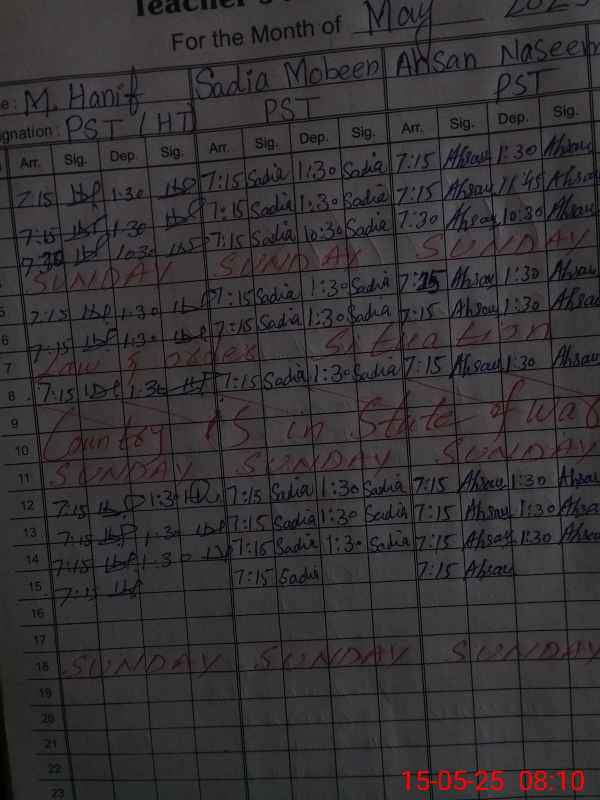 Teacher's
For the Month of May 202
e : M. Hanif Sadia Mobeen Ahsan Naseem
signation : PST / HT PST PST
Arr. Sig. Dep. Sig. Arr. Sig. Dep. Sig. Arr. Sig. Dep. Sig.
7:15 1:30 7:15 Sadia 1:30 Sadia 7:15 Ahsan 1:30 Ahsan
7:15 1:30 7:15 Sadia 1:30 Sadia 7:15 Ahsan 11:45 Ahsan
7:30 10:30 7:15 Sadia 10:30 Sadia 7:30 Ahsan 10:30 Ahsan
SUNDAY SUNDAY SUNDAY
5 7:15 1:30 7:15 Sadia 1:30 Sadia 7:15 Ahsan 1:30 Ahsan
6 7:15 1:30 7:15 Sadia 1:30 Sadia 7:15 Ahsan 1:30 Ahsan
7 Law & order Situation
8 7:15 1:30 7:15 Sadia 1:30 Sadia 7:15 Ahsan 1:30 Ahsan
9
10 Country is in State of war
11 SUNDAY SUNDAY SUNDAY
12 7:15 1:30 7:15 Sadia 1:30 Sadia 7:15 Ahsan 1:30 Ahsan
13 7:15 1:30 7:15 Sadia 1:30 Sadia 7:15 Ahsan 1:30 Ahsan
14 7:15 1:30 7:15 Sadia 1:30 Sadia 7:15 Ahsan 1:30 Ahsan
15 7:15 7:15 Sadia 7:15 Ahsan
16
17
18 SUNDAY SUNDAY SUNDAY
19
20
21
22
23
15-05-25 08:10